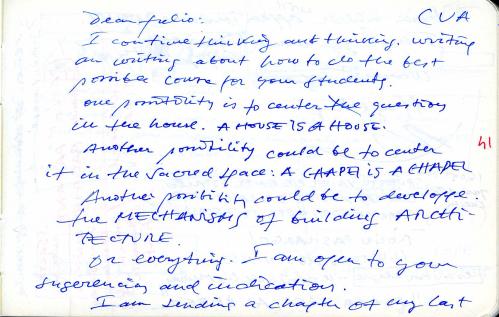 Dear Julio: CVA
I continue thinking and thinking. writing
an writing about how to do the best
possible course for your students.
one possibility is to center the question
in the house. A HOUSE IS A HOUSE.
Another possibility could be to center
it in the sacred space: A CHAPEL IS A CHAPEL
Another posibility could be to developpe.
the MECHANISMS of building ARCHI-
TECTURE.
Or everything. I am open to your
sugerencies and indications.
I am sending a chapter of my last
41